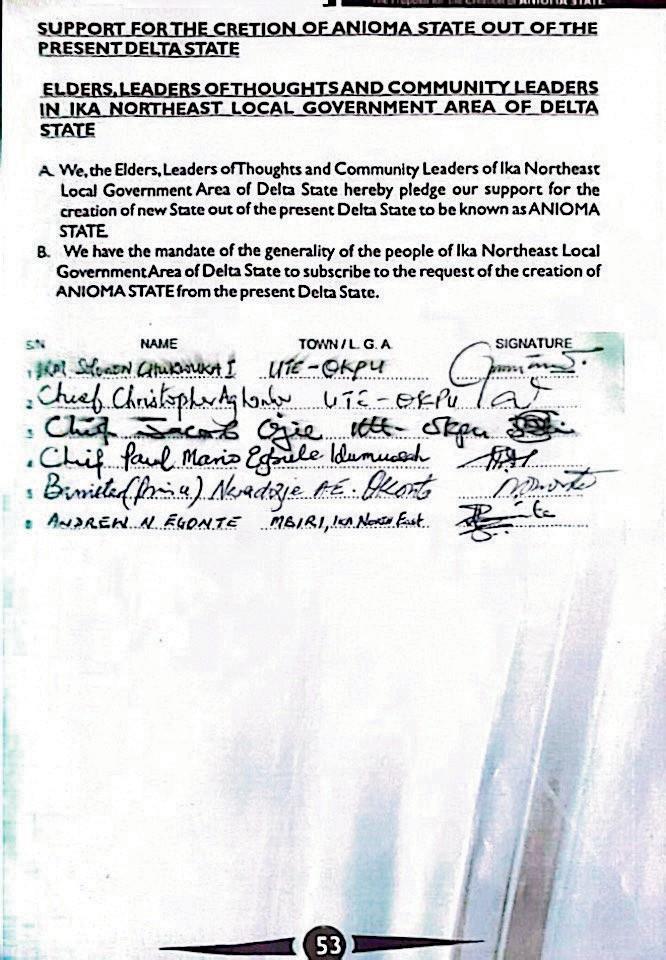 ANIOMA STATE
SUPPORT FOR THE CRETION OF ANIOMA STATE OUT OF THE
PRESENT DELTA STATE
ELDERS, LEADERS OF THOUGHTS AND COMMUNITY LEADERS
IN IKA NORTHEAST LOCAL GOVERNMENT AREA OF DELTA
STATE
A. We, the Elders, Leaders of Thoughts and Community Leaders of Ika Northeast
Local Government Area of Delta State hereby pledge our support for the
creation of new State out of the present Delta State to be known as ANIOMA
STATE.
B. We have the mandate of the generality of the people of Ika Northeast Local
Government Area of Delta State to subscribe to the request of the creation of
ANIOMA STATE from the present Delta State.
S.N NAME TOWN / L. G. A. SIGNATURE
1 SOLOMON CHUKWUKA I UTE-OKPU
2 Chief Christopher UTE-OKPU
3 Chief Jacob Ojie Ute-Okpu
4 Chief Paul Mario
5
6 ANDREW N. EGONTE MBIRI, IKA North East
53